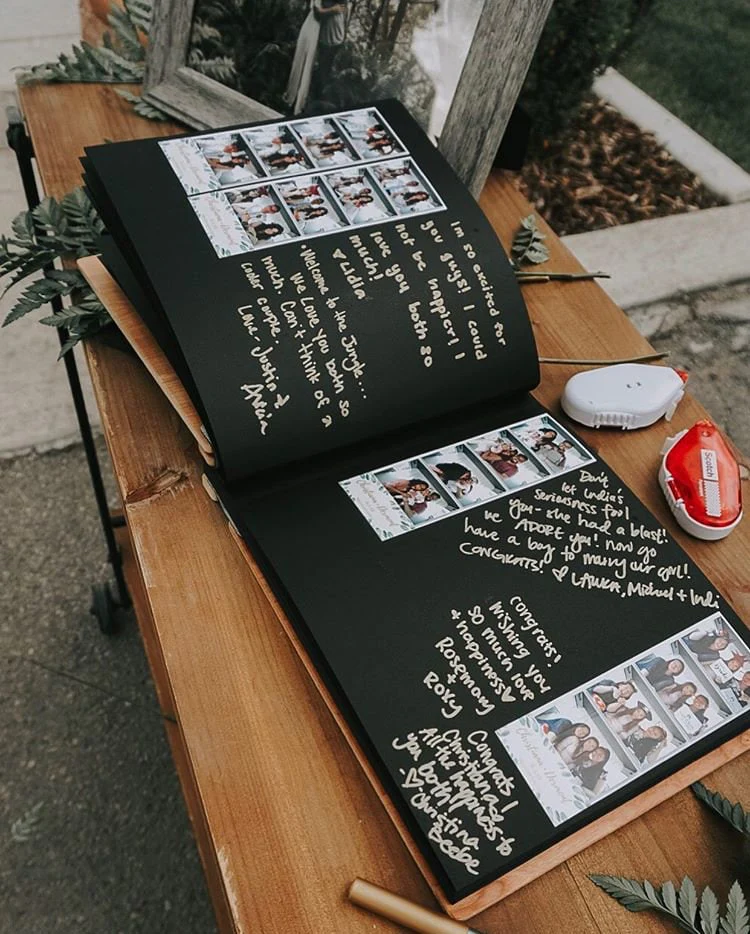 I'm so excited for
you guys! I could
not be happier! I
love you both so
much!
♥ Lidia
"Welcome to the Jungle...
We love you both so
much. Can't think of a
cooler couple.
Love, Justin &
Don't
let India's
seriousness fool
you - she had a blast!
we ADORE you! now go
have a bay to marry our girl!
CONGRATS! ♥ LAURA, Michael + Indi
Scotch
Congrats!
Wishing you
so much love
+ happiness ♥
Rosemary
+
Roxy
Congrats
Christiana &
All the happiness to
you both!
♡ Christina
Beebe